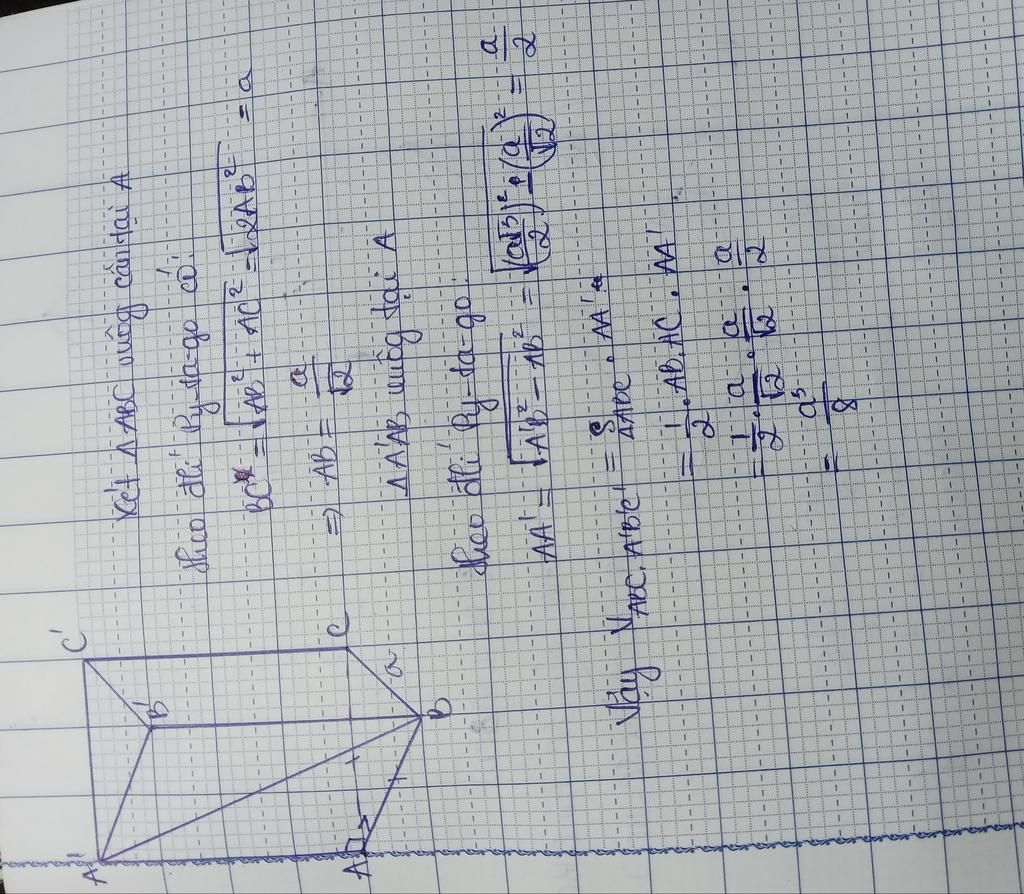 A'
C'
B'
A
B
C
a
Xét ΔABC vuông cân tại A
theo đlí Py-ta-go có:
BC = √(AB² + AC²) = √(2AB²) = a
=> AB = a/√2
ΔA'AB vuông tại A
theo đlí Py-ta-go:
AA' = √(A'B² - AB²) = √((a√3/2)² - (a/√2)²) = a/2
Vậy V_ABC.A'B'C' = S_ΔABC . AA'
= 1/2 . AB . AC . AA'
= 1/2 . a/√2 . a/√2 . a/2
= a³/8